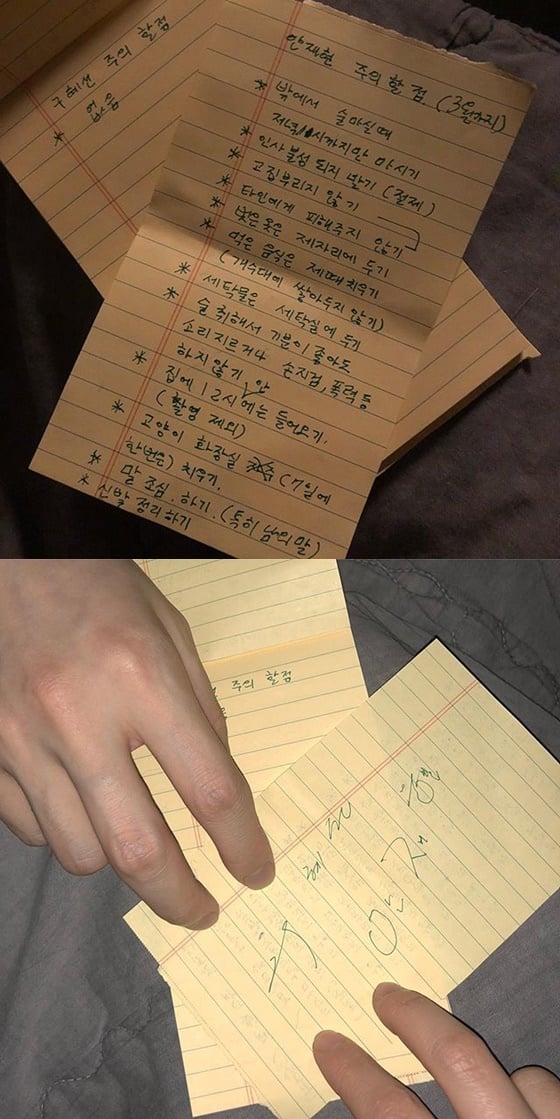 구혜선 주의 할점
* 없음
안재현 주의 할 점 (3월까지)
* 밖에서 술마실때
저녁 시까지만 마시기
* 인사불성 되지 말기 (절제)
* 고집부리지 않기
* 타인에게 피해주지 않기
* 벗은옷은 제자리에 두기
* 먹은 음식은 제때치우기
(개수대에 쌓아두지 않기)
* 세탁물은 세탁실에 두기
* 술 취해서 기분이 좋아도
소리지르거나 손지검, 폭력 등
하지않기
* 집에 12시 안에는 들어오기.
(촬영 제외)
* 고양이 화장실 (7일에
한번은) 치우기.
* 말 조심. 하기. (특히 남의 말)
* 신발 정리하기
주의 할점
구혜선
안재현